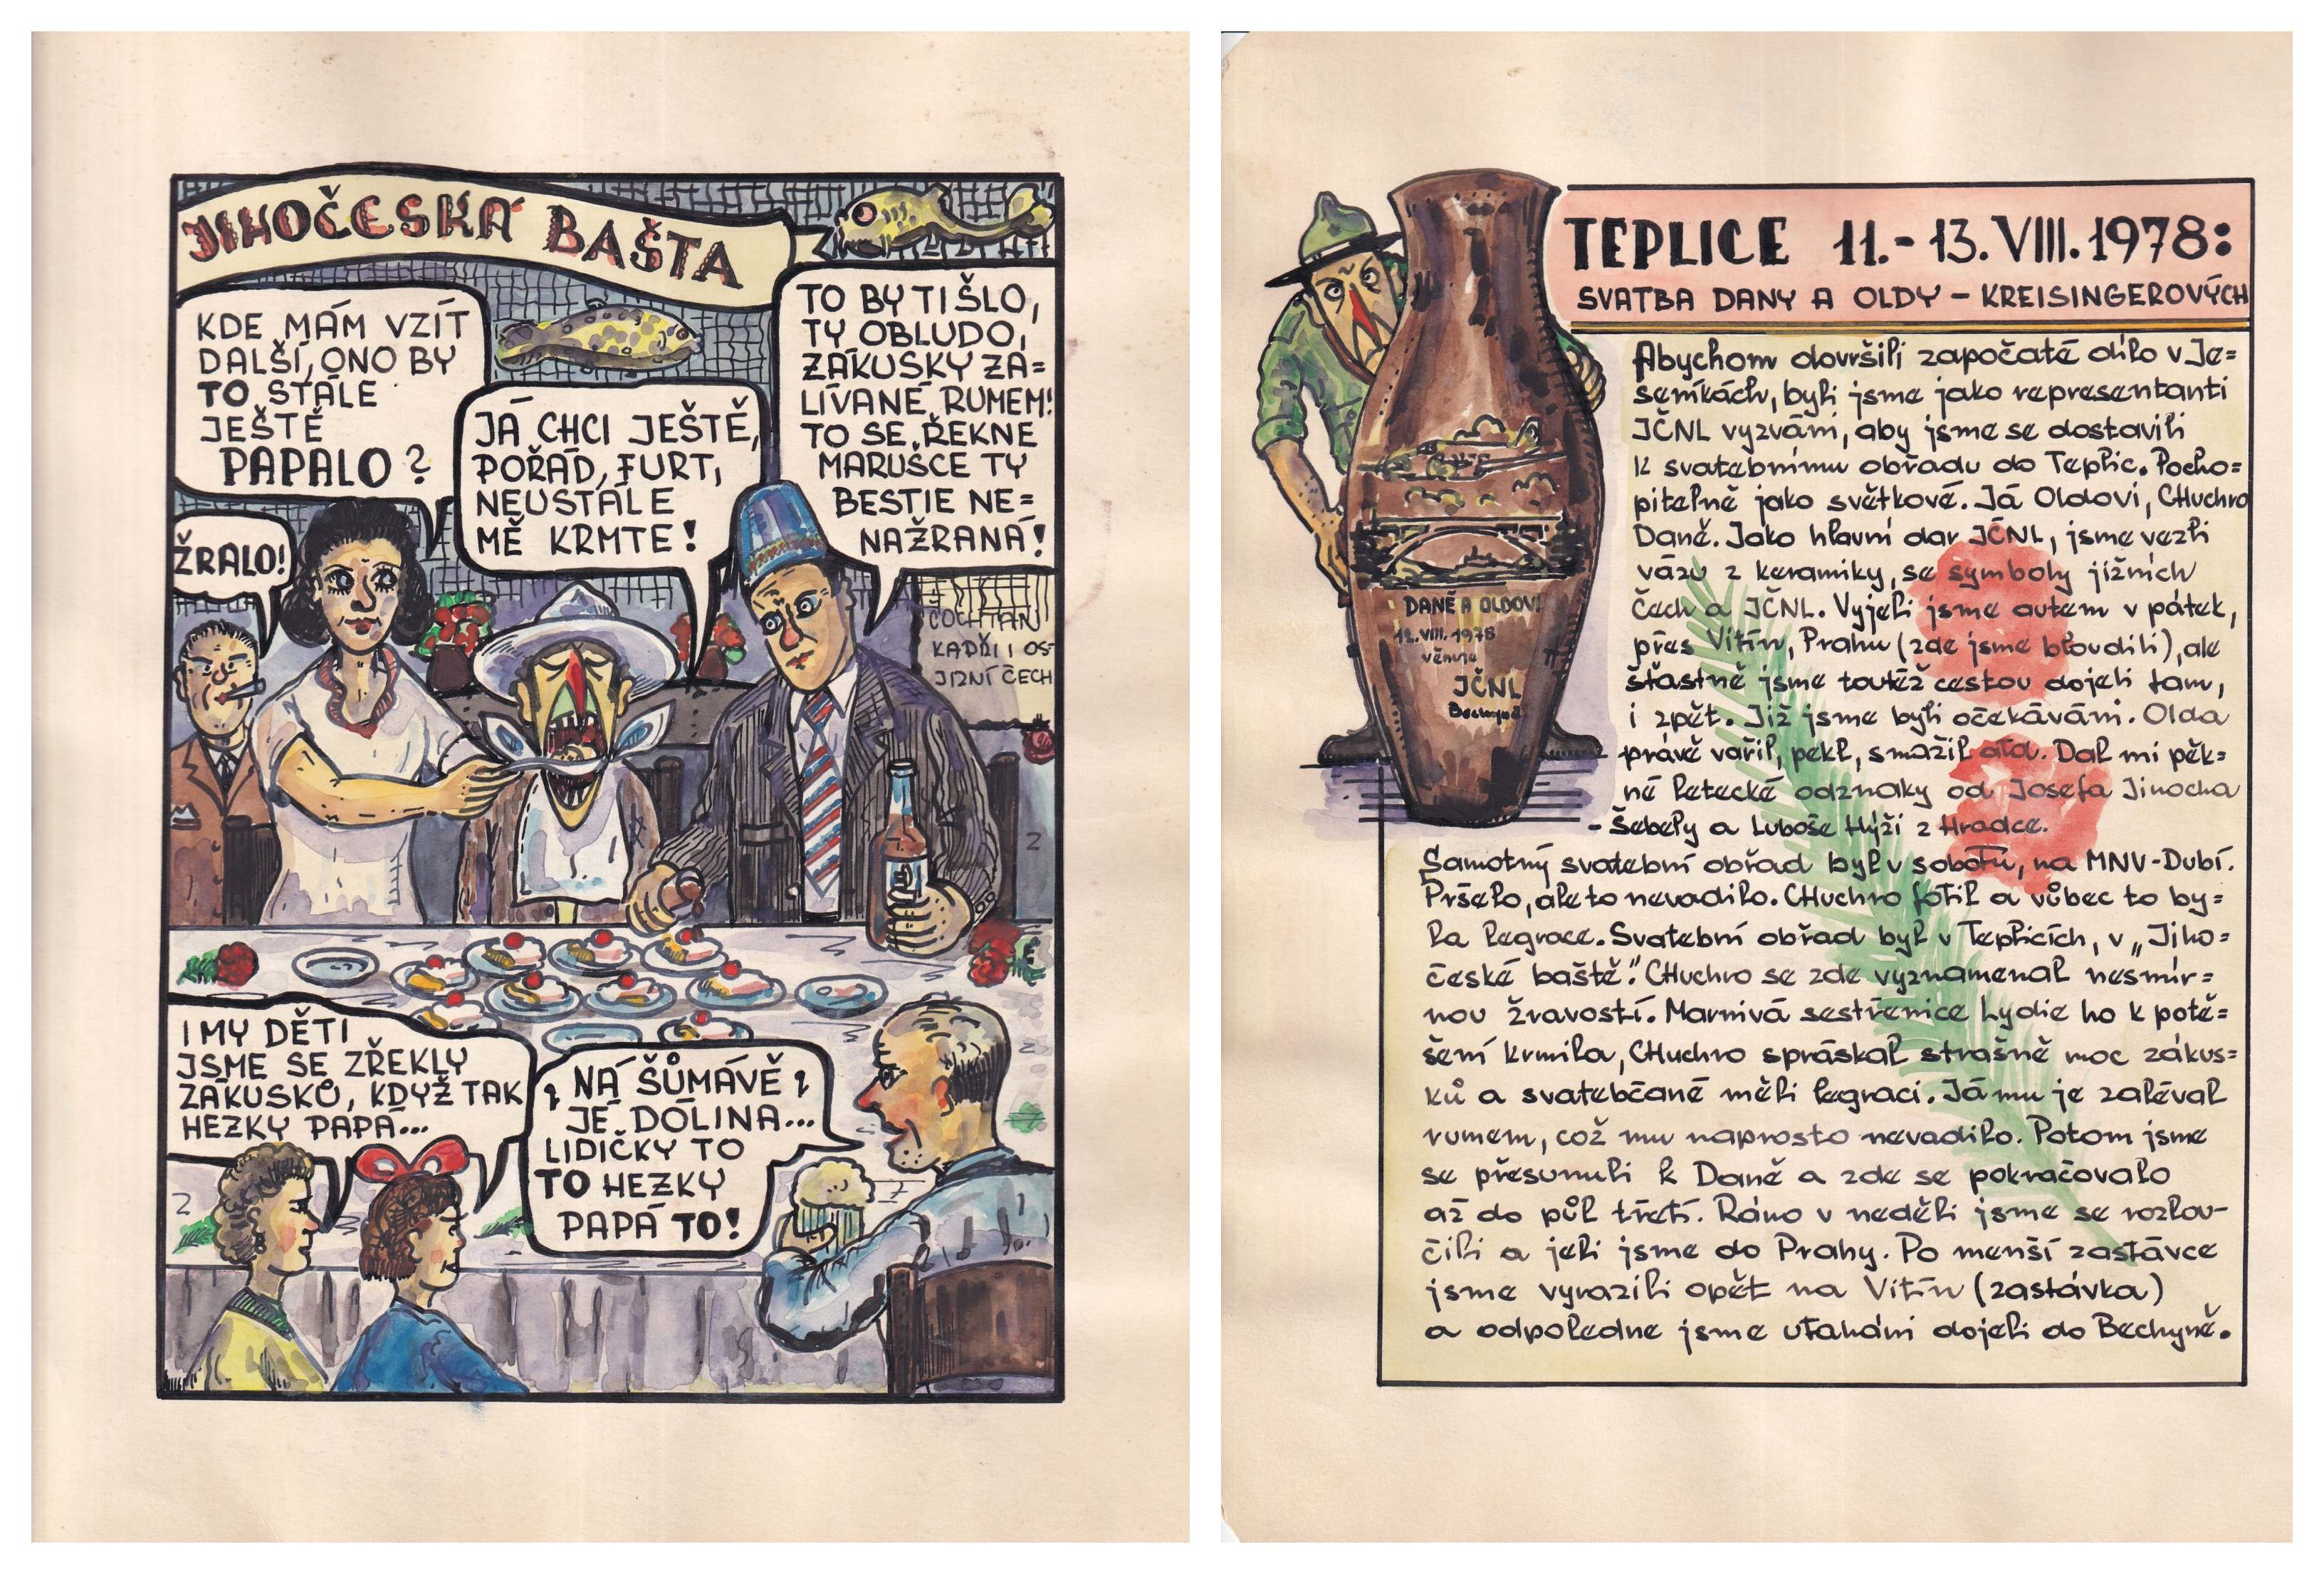 JIHOČESKÁ BAŠTA
KDE MÁM VZÍT
DALŠÍ, ONO BY
TO STÁLE
JEŠTĚ
PAPALO?
TO BY TI ŠLO,
TY OBLUDO,
ZÁKUSKY ZA=
LÍVANÉ RUMEM!
TO SE ŘEKNE
MARUŠCE TY
BESTIE NE=
NAŽRANÁ!
JÁ CHCI JEŠTĚ,
POŘÁD, FURT,
NEUSTÁLE
MĚ KRMTE!
ŽRALO!
COCHTAN
KADŘÍ I OS-
JIŽNÍ ČECH
I MY DĚTI
JSME SE ZŘEKLY
ZÁKUSKŮ, KDYŽ TAK
HEZKY PAPÁ...
NÁ ŠŮMÁVĚ
JE DÓLINA...
LIDIČKY TO
TO HEZKY
PAPÁ TO!
TEPLICE 11.- 13. VIII. 1978:
SVATBA DANY A OLDY - KREISINGEROVÝCH
Abychom dovršili započaté dílo v Je=
seníkách, byli jsme jako representanti
JČNL vyzváni, aby jsme se dostavili
k svatebnímu obřadu do Teplic. Pocho=
pitelně jako světkové. Já Oldovi, CHuchro
Daně. Jako hlavní dar JČNL, jsme vezli
vázu z keramiky, se symboly jižních
Čech a JČNL. Vyjeli jsme autem v pátek,
přes Vitín, Prahu (zde jsme bloudili), ale
šťastně jsme toutéž cestou dojeli tam,
i zpět. Již jsme byli očekáváni. Olda
právě vařil, pekl, smažil atd. Dal mi pěk=
né letecké odznaky od Josefa Jinocha
- Šebely a Luboše Hýži z Hradce.
Samotný svatební obřad byl v sobotu, na MNV-Dubí.
Pršelo, ale to nevadilo. CHuchro fotil a vůbec to by=
la legrace. Svatební obřad byl v Teplicích, v „Jiho=
české baště". CHuchro se zde vyznamenal nesmír=
nou žravostí. Marnivá sestřenice Lydie ho k potě=
šení krmila, CHuchro spráskal strašně moc zákus=
ků a svatebčané měli legraci. Já mu je zaléval
rumem, což mu naprosto nevadilo. Potom jsme
se přesunuli k Daně a zde se pokračovalo
až do půl třetí. Ráno v neděli jsme se rozlou-
čili a jeli jsme do Prahy. Po menší zastávce
jsme vyrazili opět na Vitín (zastávka)
a odpoledne jsme utaháni dojeli do Bechyně.
DANĚ A OLDOVI
12. VIII. 1978
věnuje
JČNL
Bechyně